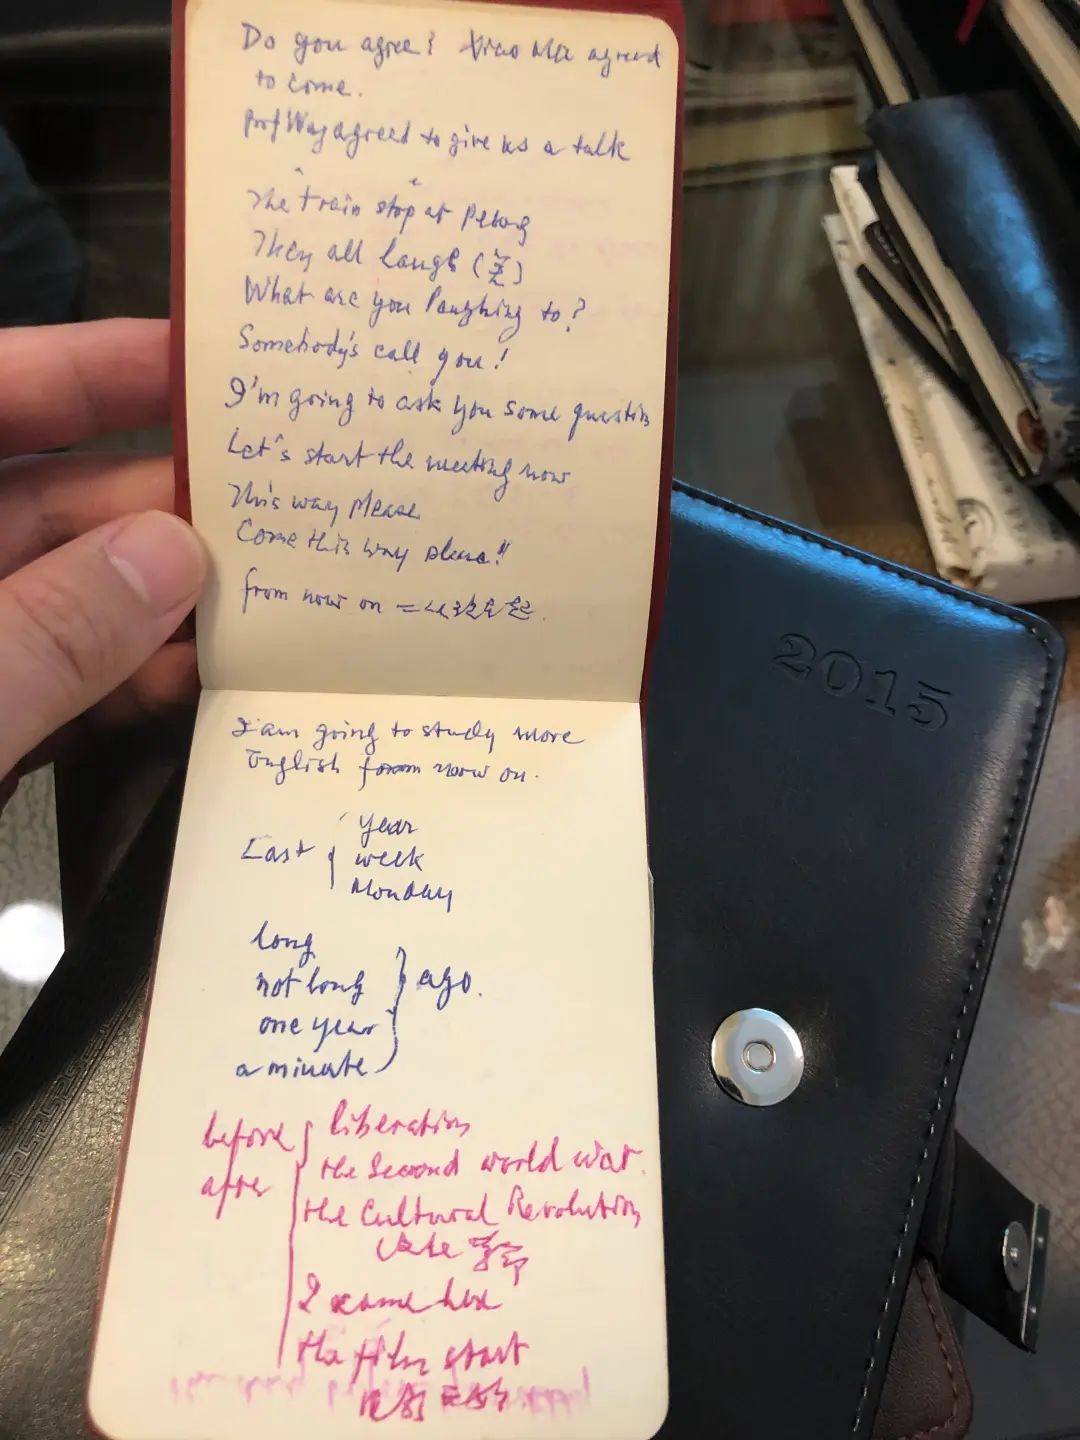 Do you agree? Xiao Ma agreed
to come.
Prof Wang agreed to give us a talk
The train stop at Peking
They all laugh (笑)
What are you laughing to?
Somebody's call you!
I'm going to ask you some question
Let's start the meeting now
This way please
Come this way please!!
from now on =
I am going to study more
English from now on.
Last { year
week
Monday
long
not long } ago.
one year
a minute
before { liberation
after the Second world war.
the Cultural Revolution
I came here
the film start
2015